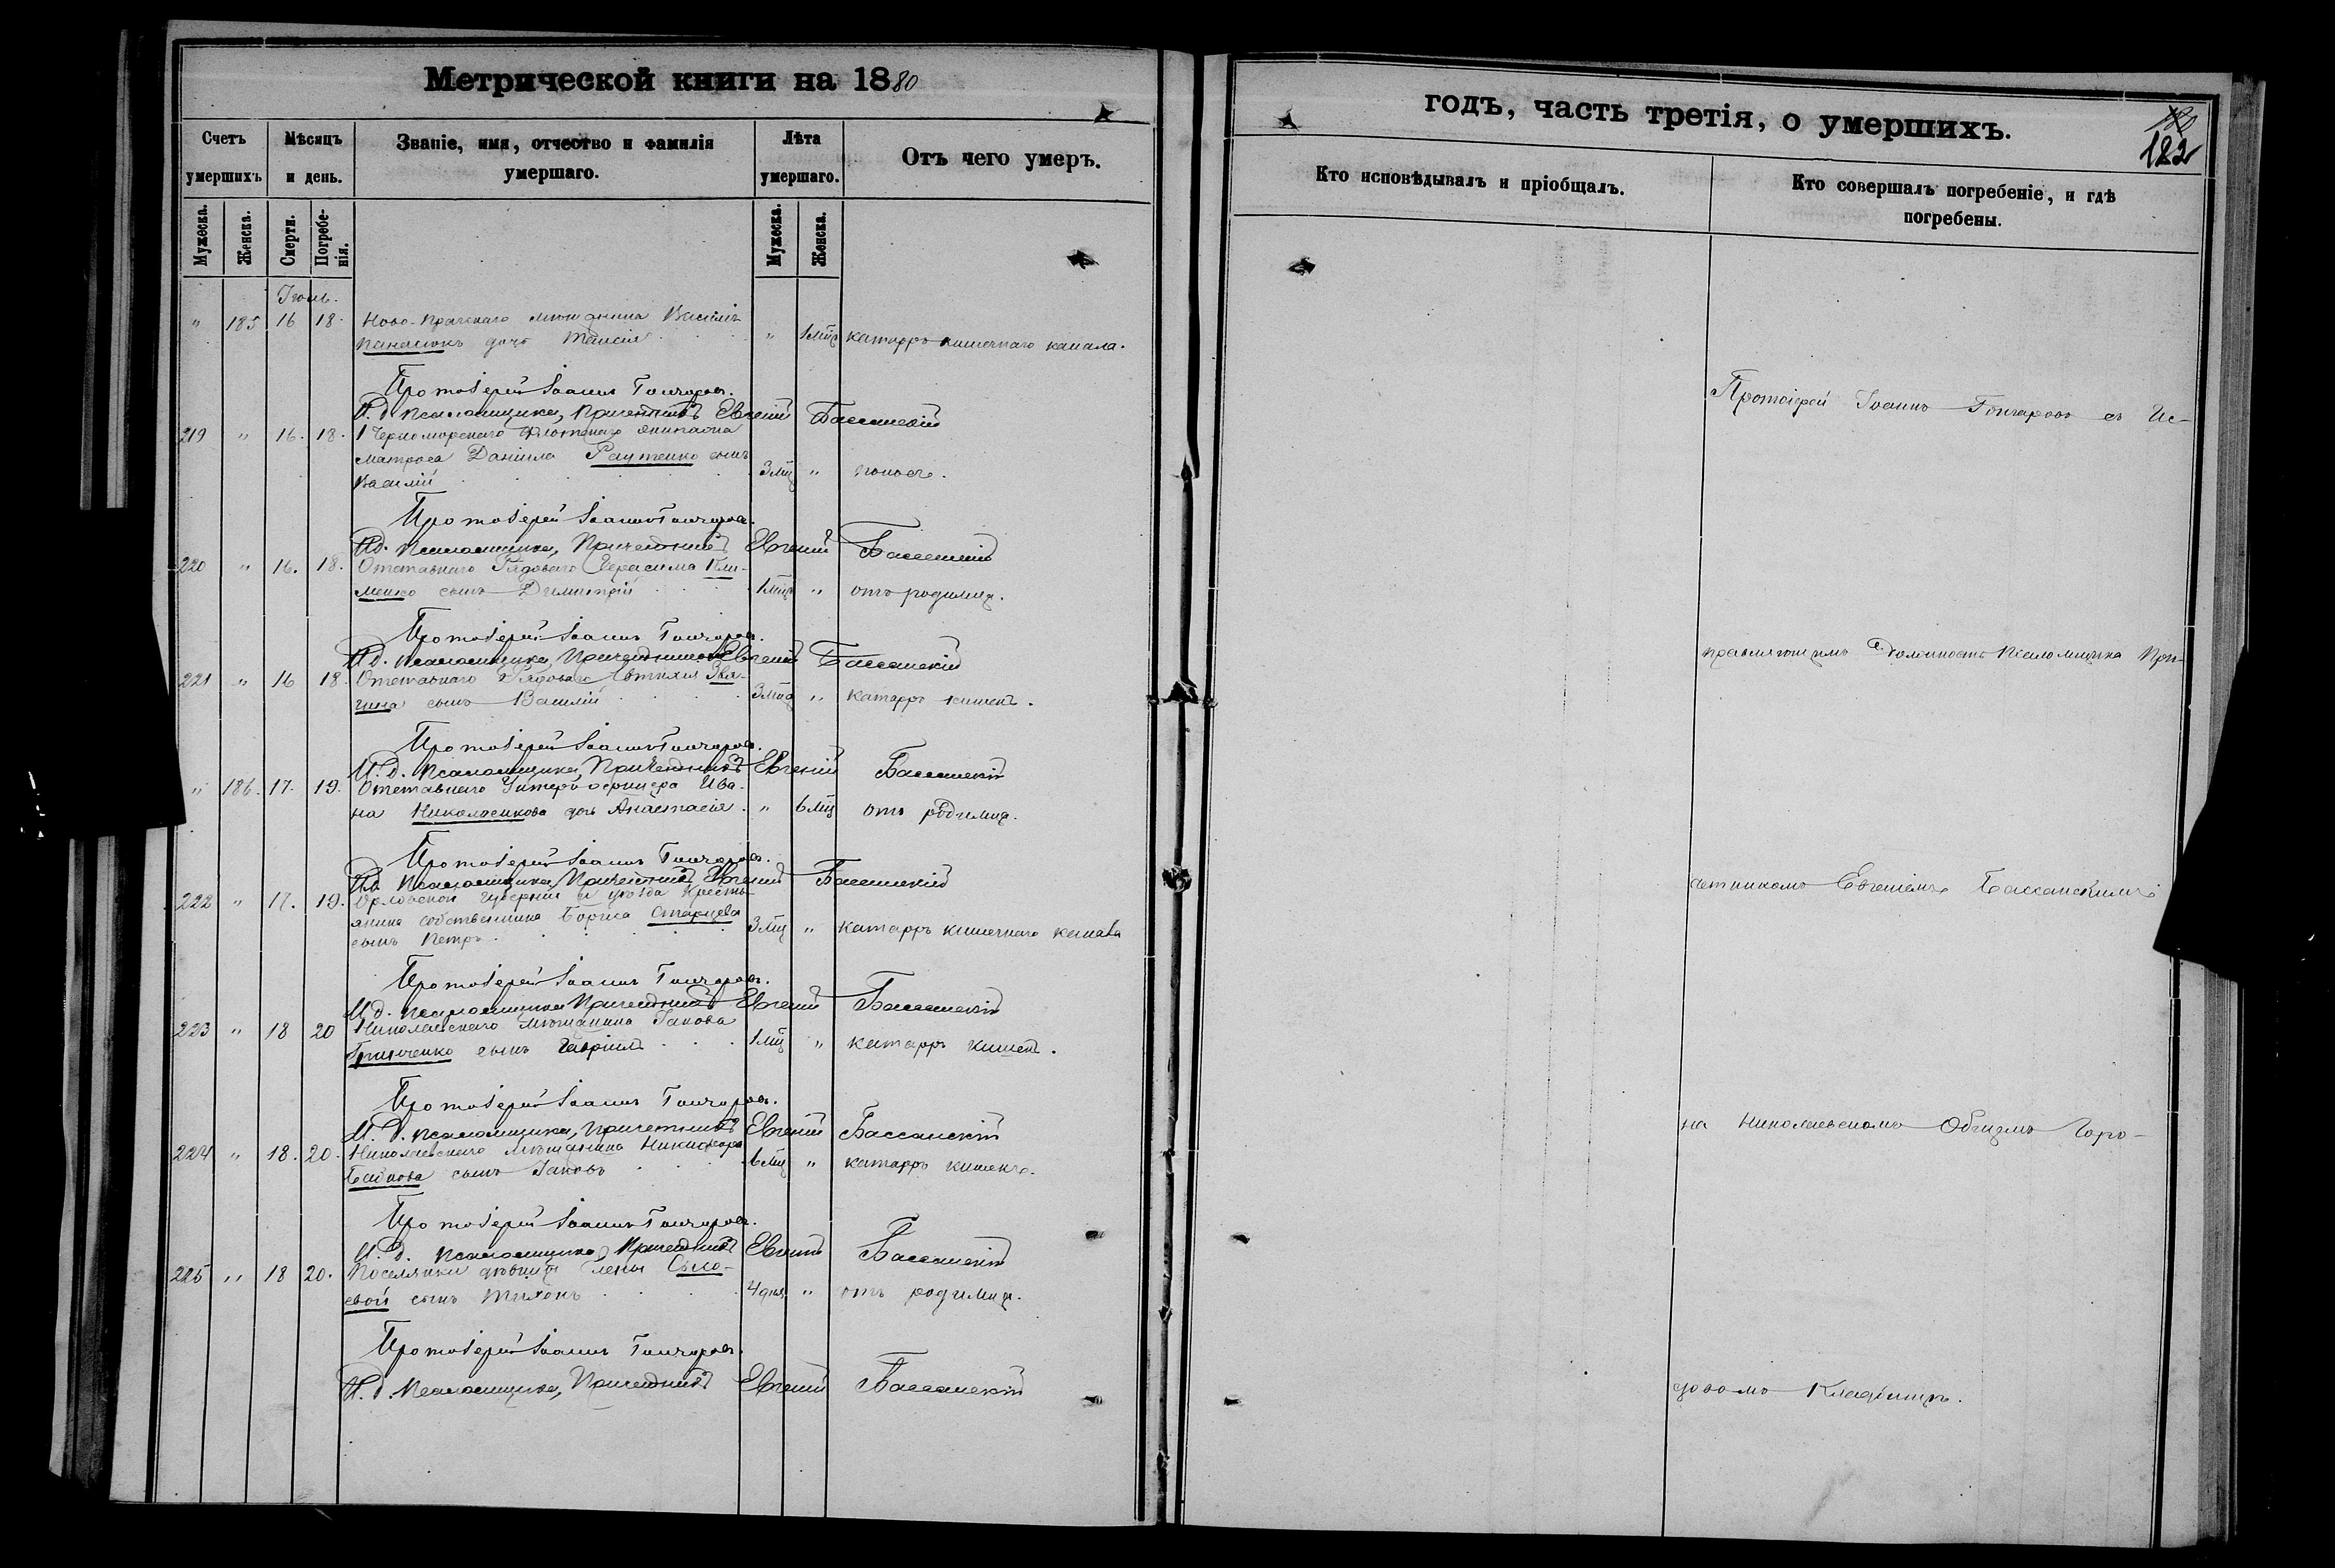 Метрической книги на 1880
Счетъ умершихъ
Мѣсяцъ и день.
Званіе, имя, отчество и фамилія умершаго.
Лѣта умершаго.
Отъ чего умеръ.
Мужеска.
Женска.
Смерти.
Погребенія.
Мужеска.
Женска.
Іюль.
" 185 16 18. Ново-Прагскаго мѣщанина Василія
Панасюкъ дочь Таисія " 1 мца катарръ кишечнаго канала.
Протоіерей Іоаннъ Гончаровъ.
И. д. псаломщика, Причетникъ Евгений Бассанскій
219 " 16. 18. 1 Черноморскаго Флотскаго экипажа
матроса Даніила Раутенко сынъ
Василій 3 мц " поносъ.
Протоіерей Іоаннъ Гончаровъ.
И. д. псаломщика, Причетникъ Евгений Бассанскій
220 " 16. 18. Отставнаго Рядоваго Герасима Кли-
менко сынъ Димитрій 1 мца " отъ родимца.
Протоіерей Іоаннъ Гончаровъ.
И. д. псаломщика, Причетникъ Евгений Бассанскій
221 " 16 18. Отставнаго Рядоваго Евтихія Звя-
гина сынъ Василій 3 мца " катарръ кишекъ.
Протоіерей Іоаннъ Гончаровъ.
И. д. псаломщика, Причетникъ Евгений Бассанскій
" 186. 17. 19. Отставнаго Унтеръ-офицера Ива-
на Николаенкова дочь Анастасія " 6 мц отъ родимца.
Протоіерей Іоаннъ Гончаровъ.
И. д. псаломщика, Причетникъ Евгений Бассанскій
222 " 17. 19. Орловской губерніи и уѣзда Крестья-
янина собственника Бориса Старцева
сынъ Петръ. 3 мц " катарръ кишечнаго канала
Протоіерей Іоаннъ Гончаровъ.
И. д. псаломщика, Причетникъ Евгений Бассанскій
223 " 18 20 Николаевскаго мѣщанина Іакова
Гринченко сынъ Гавріилъ 1 мц " катарръ кишекъ.
Протоіерей Іоаннъ Гончаровъ.
И. д. псаломщика, Причетникъ Евгений Бассанскій
224 " 18. 20. Николаевскаго мѣщанина Никифора
сынъ Іаковъ 6 мц " катарръ кишекъ.
Протоіерей Іоаннъ Гончаровъ.
И. д. псаломщика, Причетникъ Евгений Бассанскій
225 " 18 20. Поселянки дѣвицы Елены
сынъ Тихонъ 4 дня " отъ родимца.
Протоіерей Іоаннъ Гончаровъ.
И. д. псаломщика, Причетникъ Евгений Бассанскій
годъ, часть третія, о умершихъ.
182
Кто исповѣдывалъ и пріобщалъ.
Кто совершалъ погребеніе, и гдѣ
погребены.
Протоіерей Іоаннъ Гончаровъ съ Ис-
правляющимъ должность псаломщика При-
четникомъ Евгеніемъ Бассанскимъ
на Николаевскомъ Общемъ Горо-
довомъ Кладбищѣ.